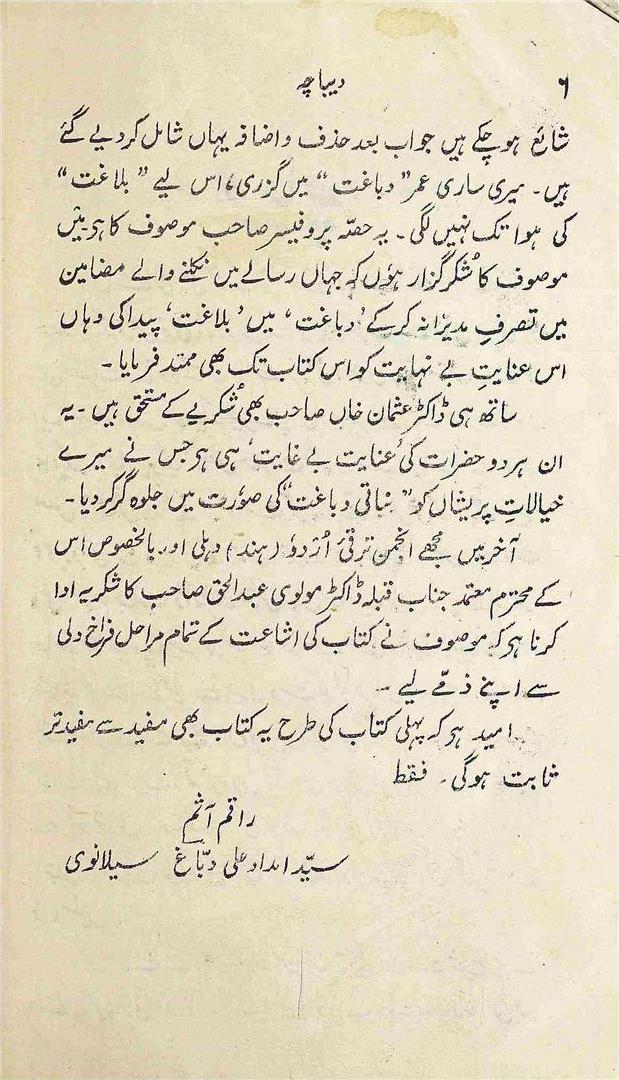 ۶
دیباچہ
شائع ہوچکے ہیں جو اب بعد حذف و اضافہ یہاں شامل کردیے گئے
ہیں۔ میری ساری عمر ”دباغت“ میں گزری، اس لیے ”بلاغت“
کی ہوا تک نہیں لگی۔ یہ حصّہ پروفیسر صاحب موصوف کا ہر میں
موصوف کا شُکر گزار ہوٗں کہ جہاں رسالے میں نکلنے والے مضامین
میں تصرفِ مدیرانہ کرکے ’دباغت‘ میں ’بلاغت‘ پیدا کی وہاں
اس عنایتِ بے نہایت کو اس کتاب تک بھی ممتد فرمایا۔
ساتھ ہی ڈاکٹر عثمان خاں صاحب بھی شُکریے کے مستحق ہیں۔ یہ
ان ہر دو حضرات کی ’عنایت بے غایت‘ ہی ہر جس نے میرے
خیالاتِ پریشاں کو ”نباتی دباغت“ کی صوٗرت میں جلوہ گر کردیا۔
آخر میں مجھے انجمن ترقیٔ اُردوٗ (ہند) دہلی اور بالخصوص اس
کے محترم معتمد جناب قبلہ ڈاکٹر مولوی عبدالحق صاحب کا شکریہ ادا
کرنا ہر کہ موصوف نے کتاب کی اشاعت کے تمام مراحل فراخ دلی
سے اپنے ذمّے لیے۔
امید ہر کہ پہلی کتاب کی طرح یہ کتاب بھی مفید سے مفید تر
ثابت ہوگی۔ فقط
راقم آثم
سیّد امداد علی دبّاغ سیلانوی